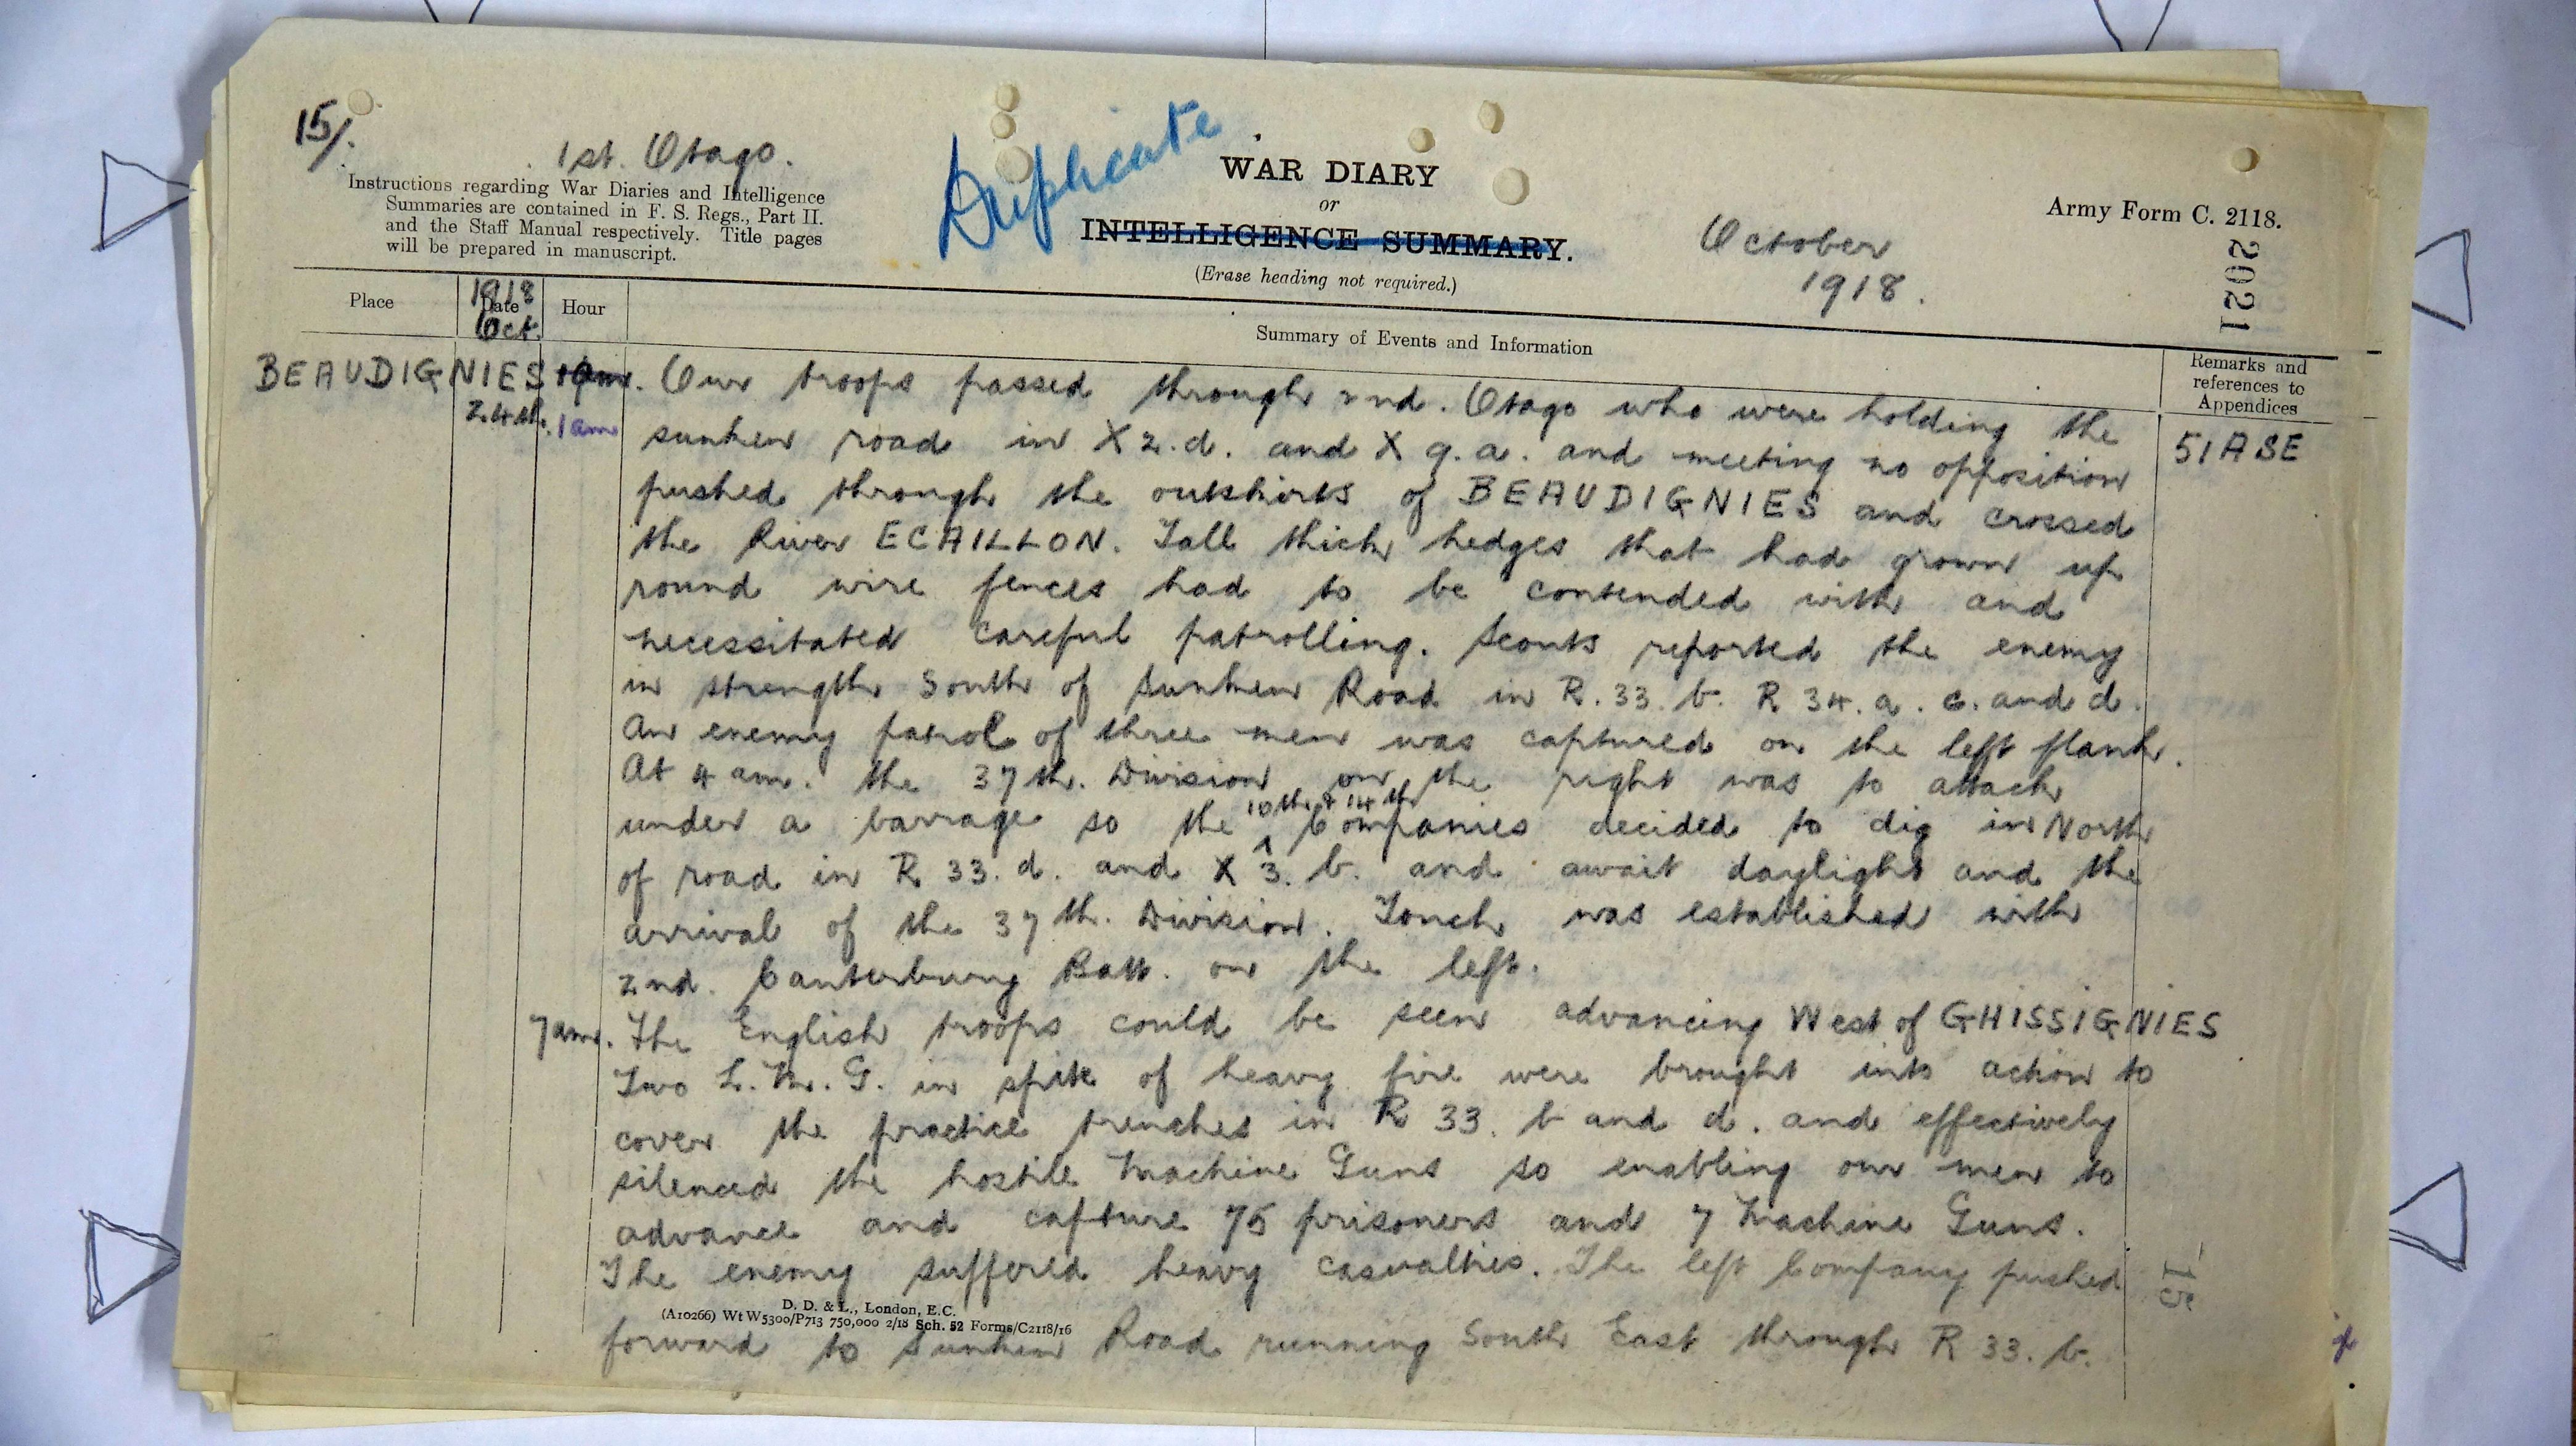 15/.
1st. Otago.
Duplicate
Instructions regarding War Diaries and Intelligence
Summaries are contained in F. S. Regs., Part II.
and the Staff Manual respectively. Title pages
will be prepared in manuscript.
WAR DIARY
or
INTELLIGENCE SUMMARY.
(Erase heading not required.)
October
1918.
Army Form C. 2118.
2021
Place
1918
Date
Oct.
Hour
Summary of Events and Information
Remarks and
references to
Appendices
BEAUDIGNIES
24th. 1am
51A SE
Our troops passed through 2nd. Otago who were holding the
sunken road in X 2.d. and X 9.a. and meeting no opposition
pushed through the outskirts of BEAUDIGNIES and crossed
the River ECAILLON. Tall thick hedges that had grown up
round wire fences had to be contended with and
necessitated careful patrolling. Scouts reported the enemy
in strength South of Sunken Road in R.33.b. R 34.a.c. and d.
An enemy patrol of three men was captured on the left flank.
At 4 am. the 37th. Division on the right was to attack
under a barrage so the 10th & 14th Companies decided to dig in North
of road in R 33.d. and X 3.b. and await daylight and the
arrival of the 37th. Division. Touch was established with
2nd. Canterbury Batt. on the left.
7am. The English troops could be seen advancing West of GHISSIGNIES
Two L.M.G. in spite of heavy fire were brought into action to
cover the practice trenches in R 33.b and d. and effectively
silenced the hostile Machine Guns so enabling our men to
advance and capture 75 prisoners and 7 Machine Guns.
The enemy suffered heavy casualties. The left Company pushed
D. D. & L., London, E.C.
(A10266) Wt W5300/P713 750,000 2/18 Sch. 52 Forms/C2118/16
forward to Sunken Road running South East through R 33.b.